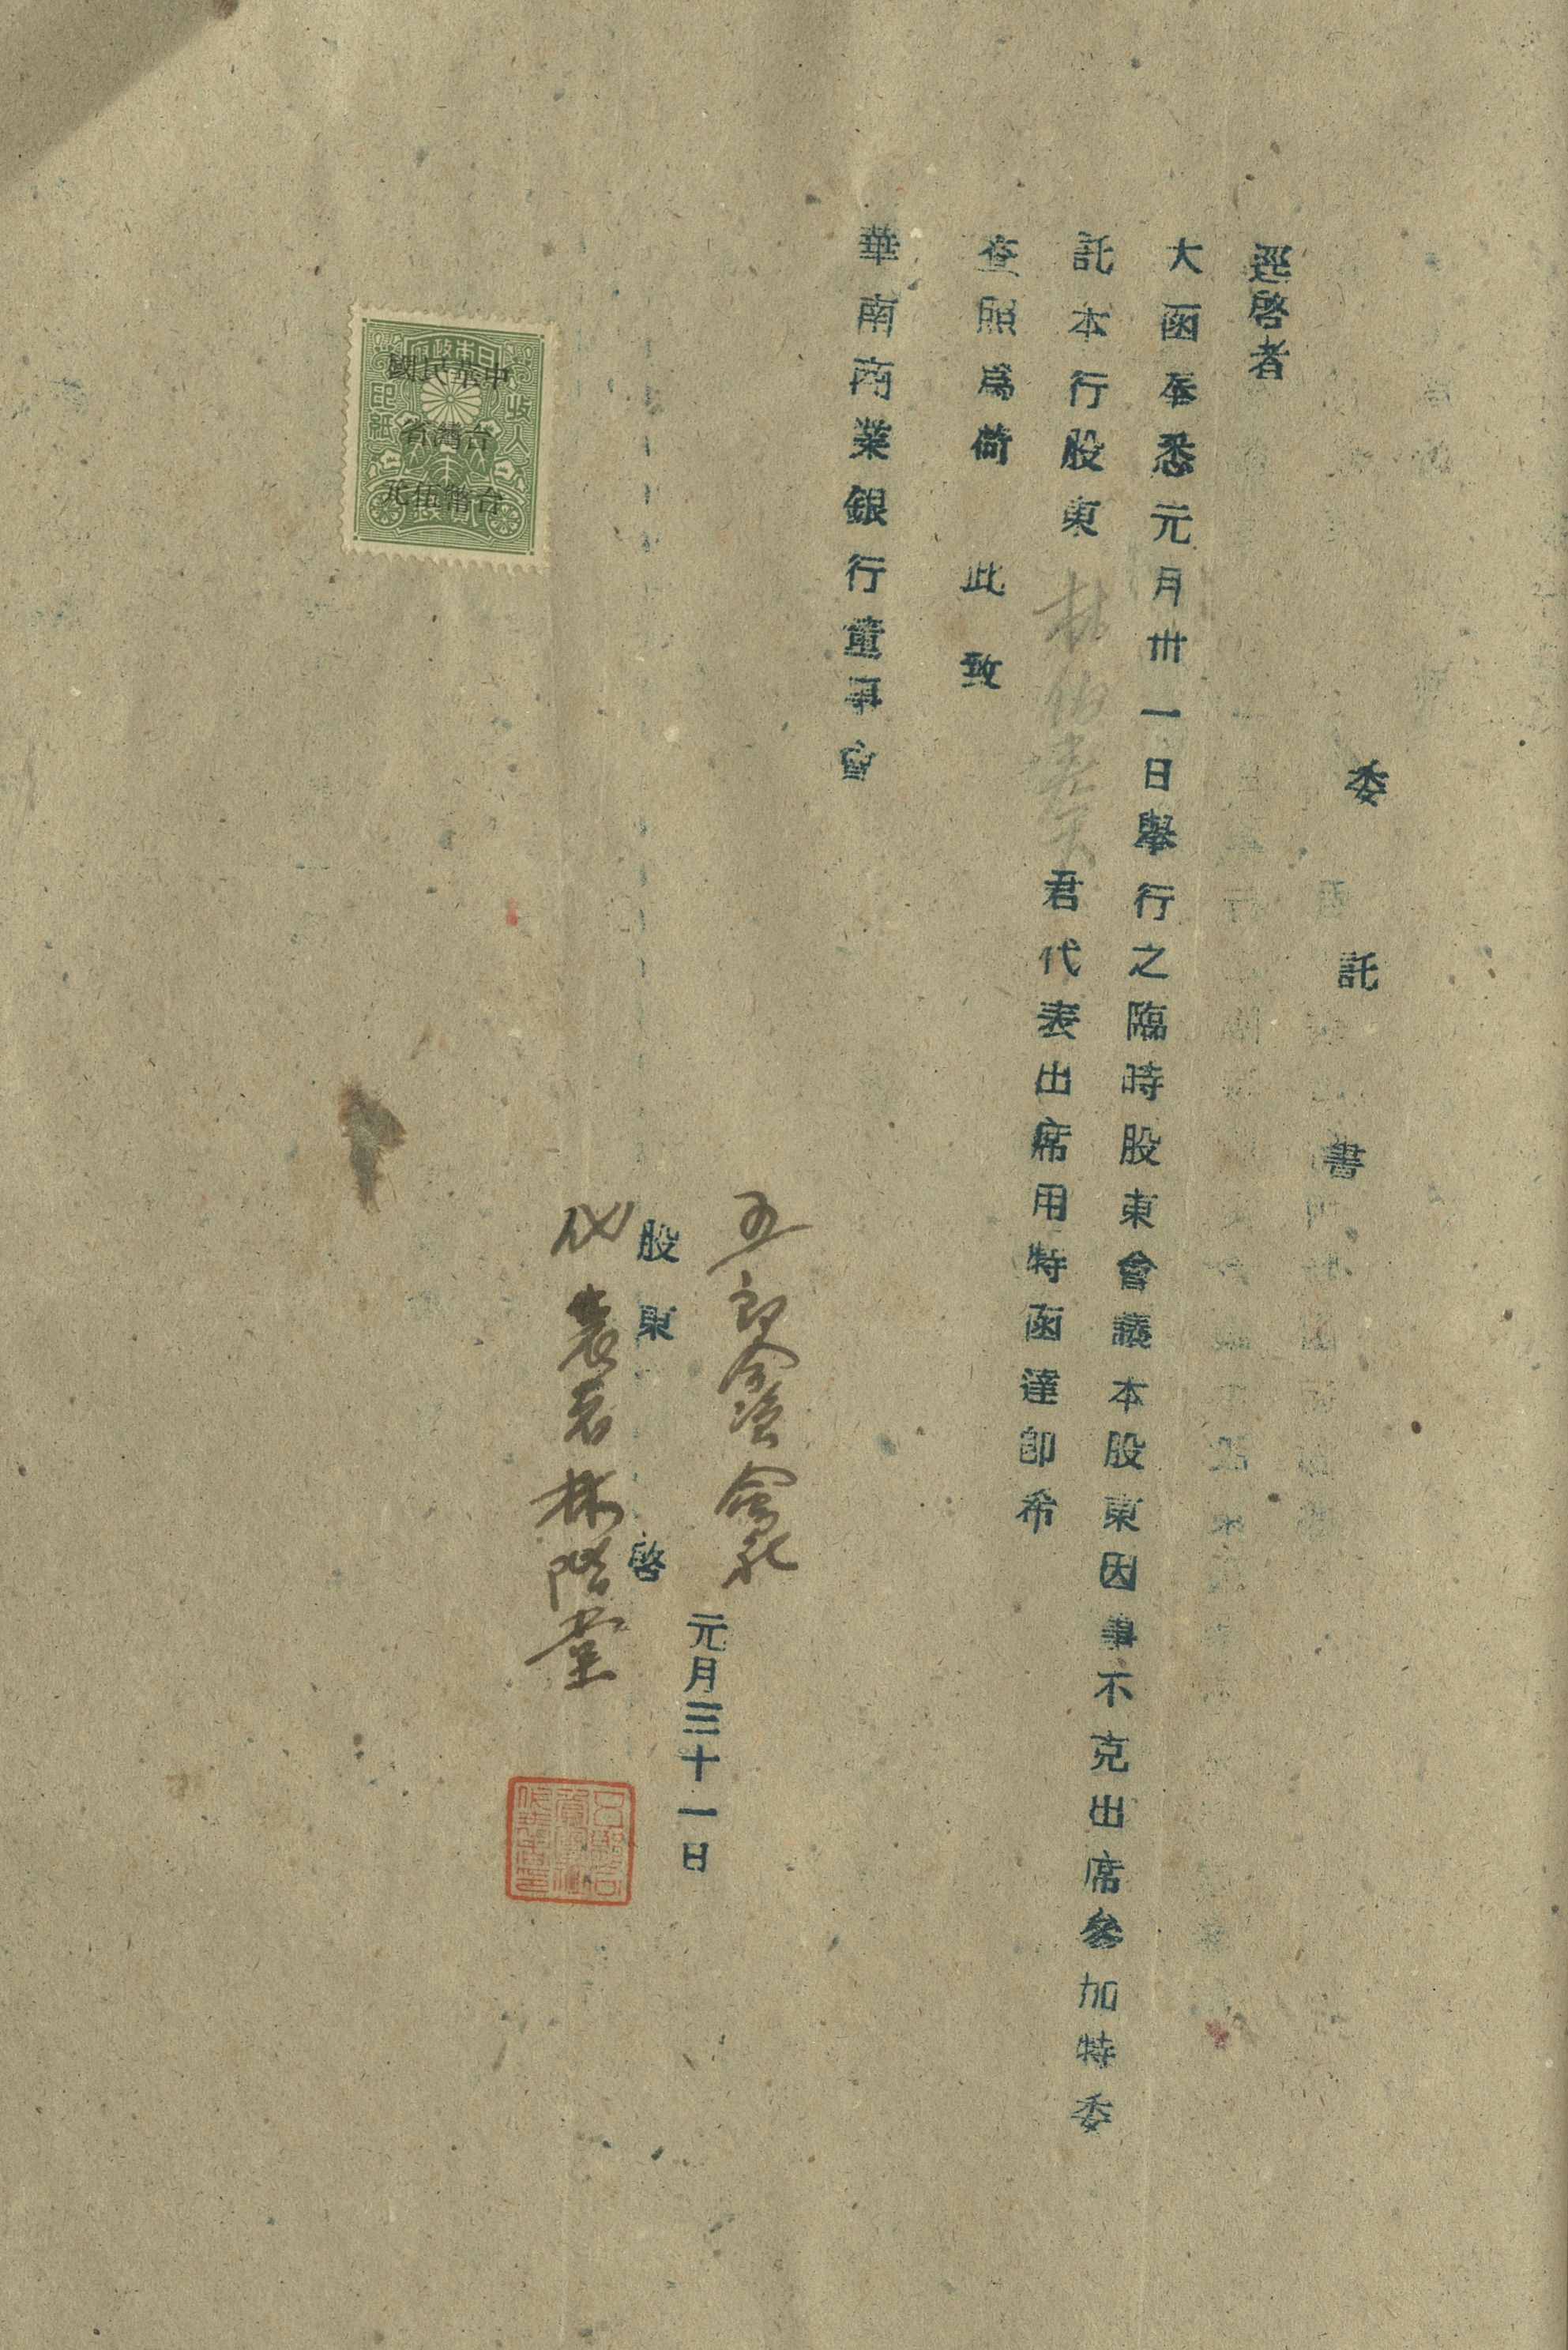 委託書
逕啓者
大函奉悉元月卅一日舉行之臨時股東會議本股東因事不克出席參加特委
託本行股東林伯壽君代表出席用特函達卽希
查照爲荷 此致
華南商業銀行董事會
元月三十一日
五郎合資會社
股東 啓
代表者林階堂
日本政府
收入印紙
中華民國
台灣省
台幣伍元